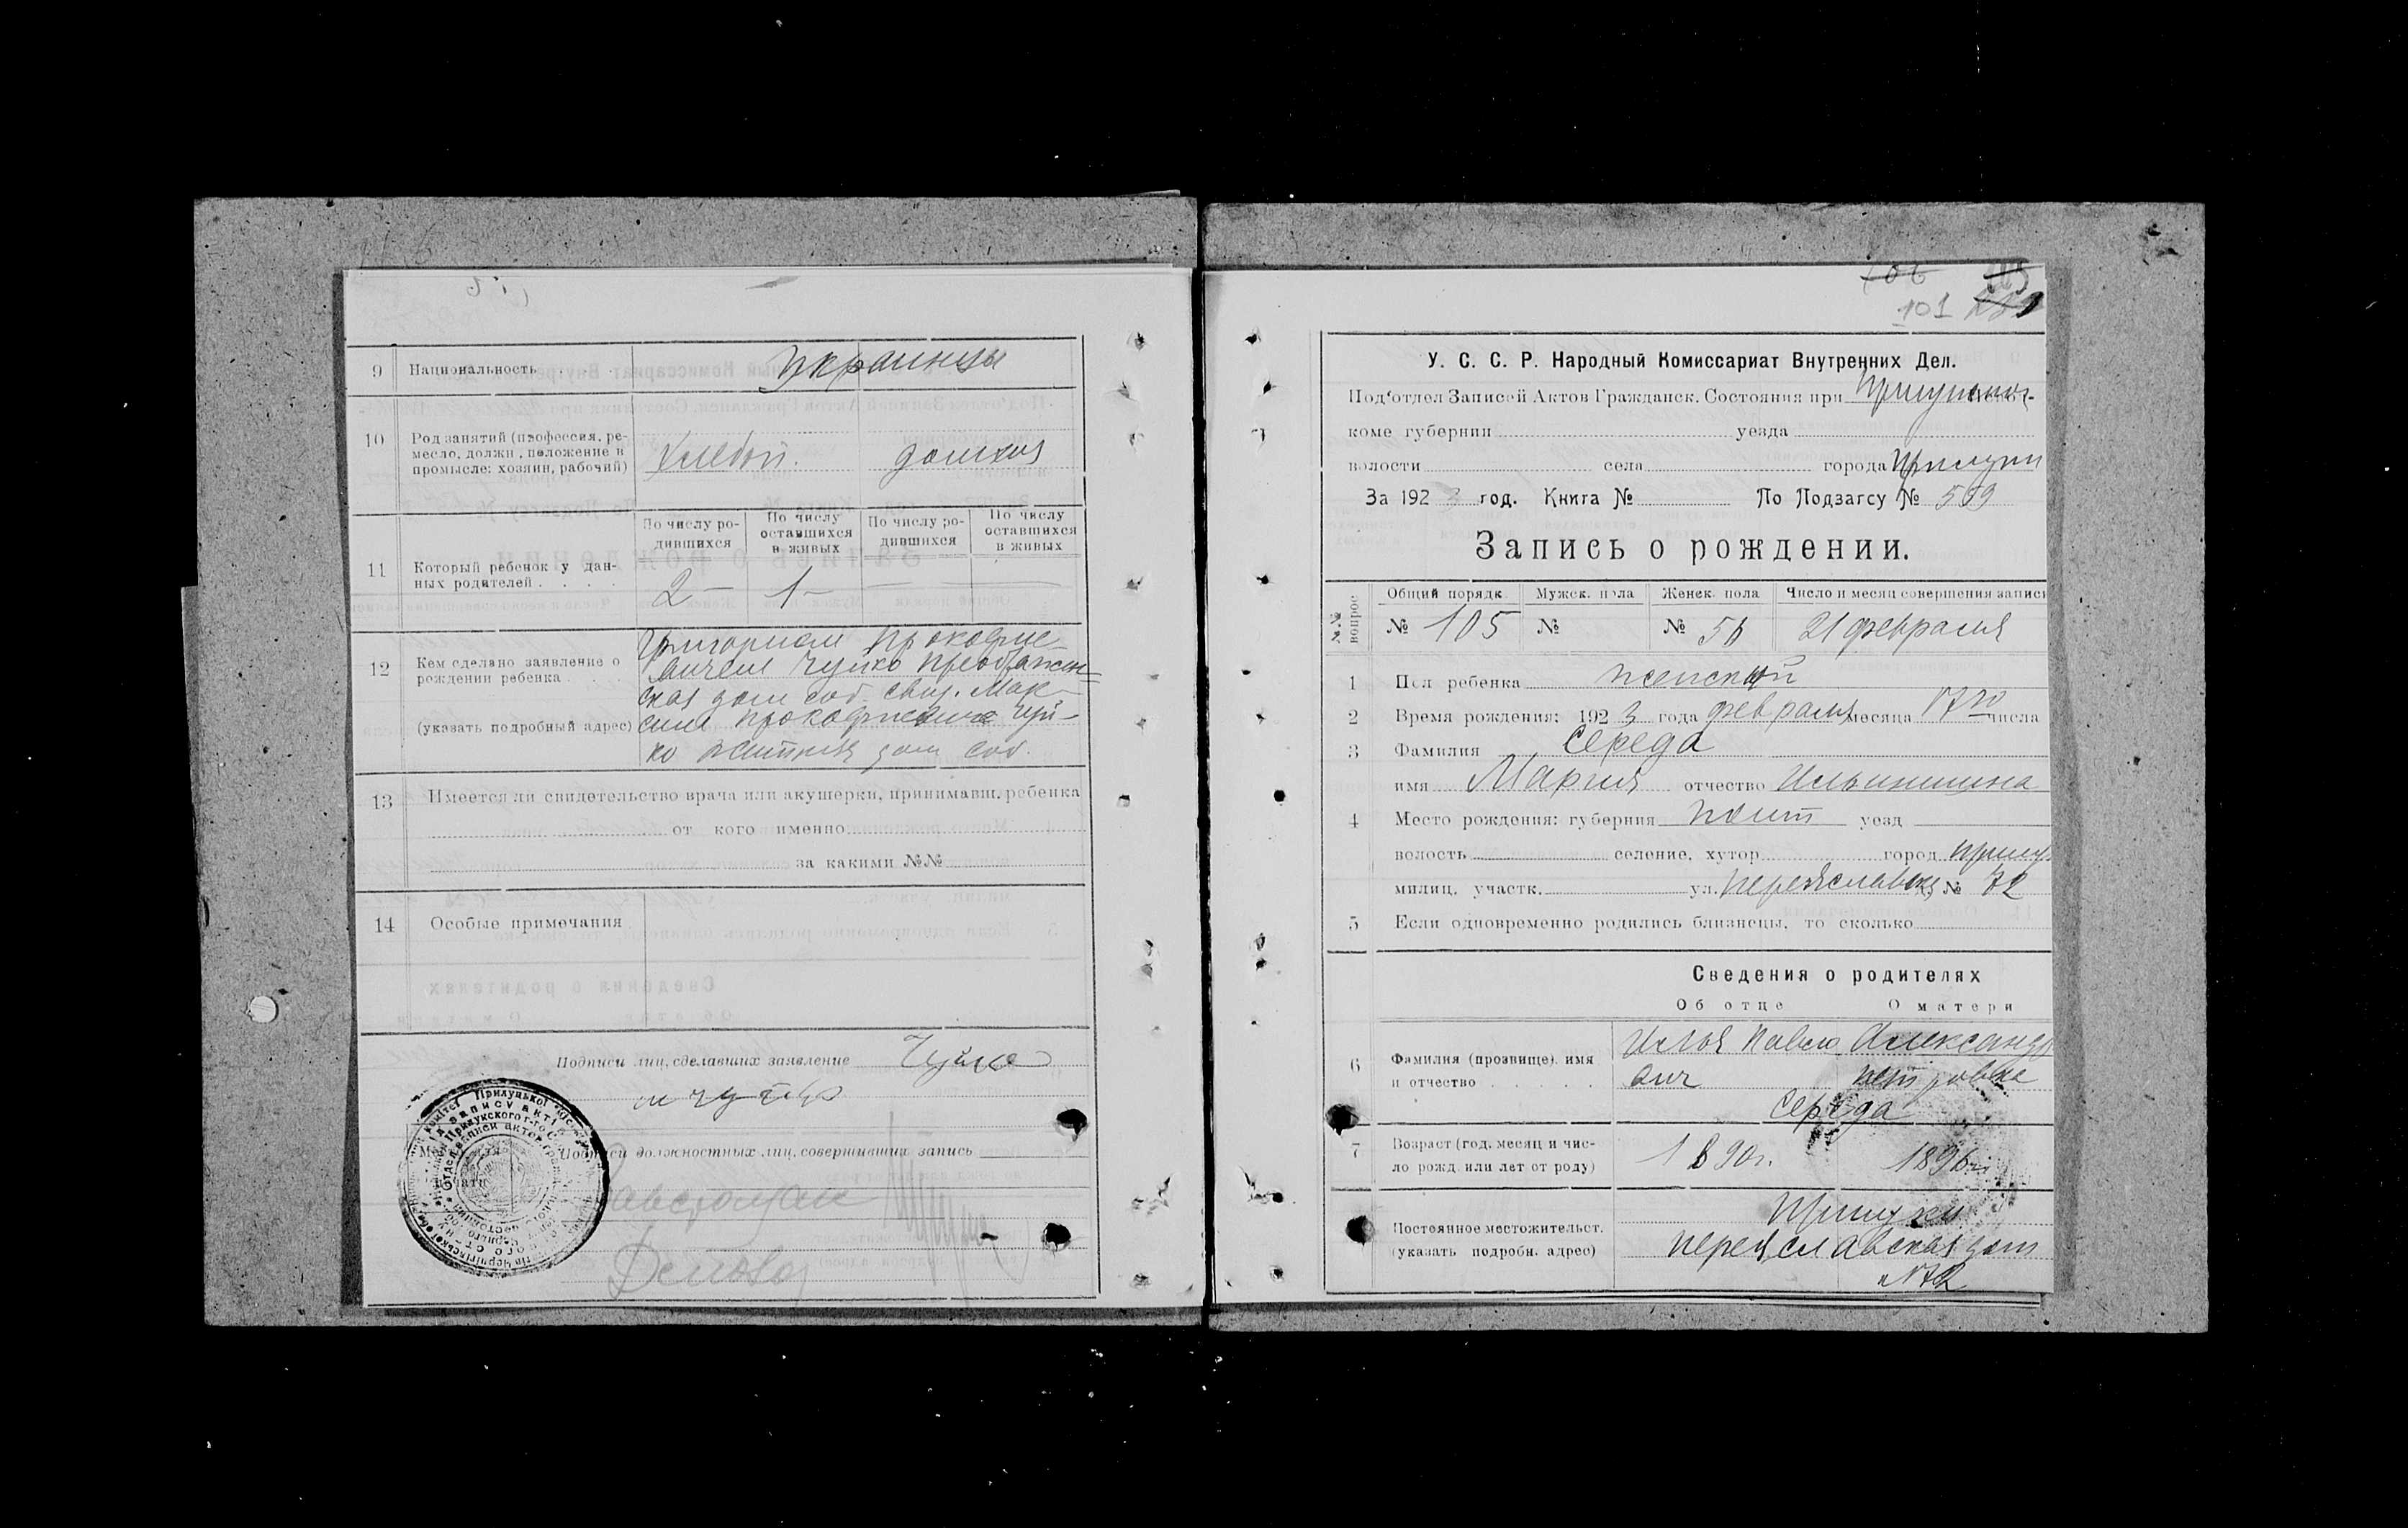 9 Национальность Украинцы
10 Род занятий (профессия, ре-
месло, должн., положение в
промысле: хозяин, рабочий)
Хлебоп. домхоз
11 Который ребенок у дан-
ных родителей
По числу ро-
дившихся
По числу
оставшихся
в живых
По числу ро-
дившихся
По числу
оставшихся
в живых
2 — 1 —
12 Кем сделано заявление о
рождении ребенка
(указать подробный адрес)
Григорием Прокофие-
вичем Чуйко Преображен-
ская дом соб. свид. Мак-
сим Прокофиевич Чуй-
ко дом соб.
13 Имеется ли свидетельство врача или акушерки, принимавш. ребенка
от кого именно
за какими №№
14 Особые примечания
Подписи лиц, сделавших заявление Чуйко
Подписи должностных лиц, совершивших запись
106
101
У. С. С. Р. Народный Комиссариат Внутренних Дел.
Под'отдел Записей Актов Гражданск. Состояния при
коме губернии уезда
волости села города Прилуки
За 1923 год. Книга № По Подзагсу № 559
Запись о рождении.
№№ вопрос
Общий порядк. Мужск. пола Женск. пола Число и месяц совершения записи
№ 105 № № 56 21 февраля
1 Пол ребенка женский
2 Время рождения: 1923 года февраля месяца 17го числа
3 Фамилия Середа
имя Мария отчество Ильинишна
4 Место рождения: губерния Полт уезд
волость селение, хутор город Прилук
милиц. участк. ул. Переяславск № 72
5 Если одновременно родились близнецы, то сколько
Сведения о родителях
Об отце О матери
6 Фамилия (прозвище), имя
и отчество
Илья Павло
вич
Александр
Петровна
Середа
7 Возраст (год, месяц и чис-
ло рожд. или лет от роду)
1890г. 1896г.
Постоянное местожительст.
(указать подробн. адрес)
Прилуки
Переяславская дом
№ 72